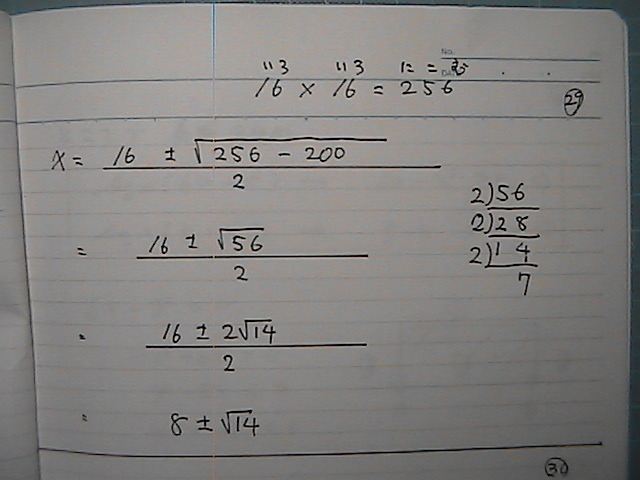 No.
113 113
16 × 16 = 256
29
x = 16 ± √256 - 200 / 2
= 16 ± √56 / 2
= 16 ± 2√14 / 2
= 8 ± √14
2)56
2)28
2)14
7
30